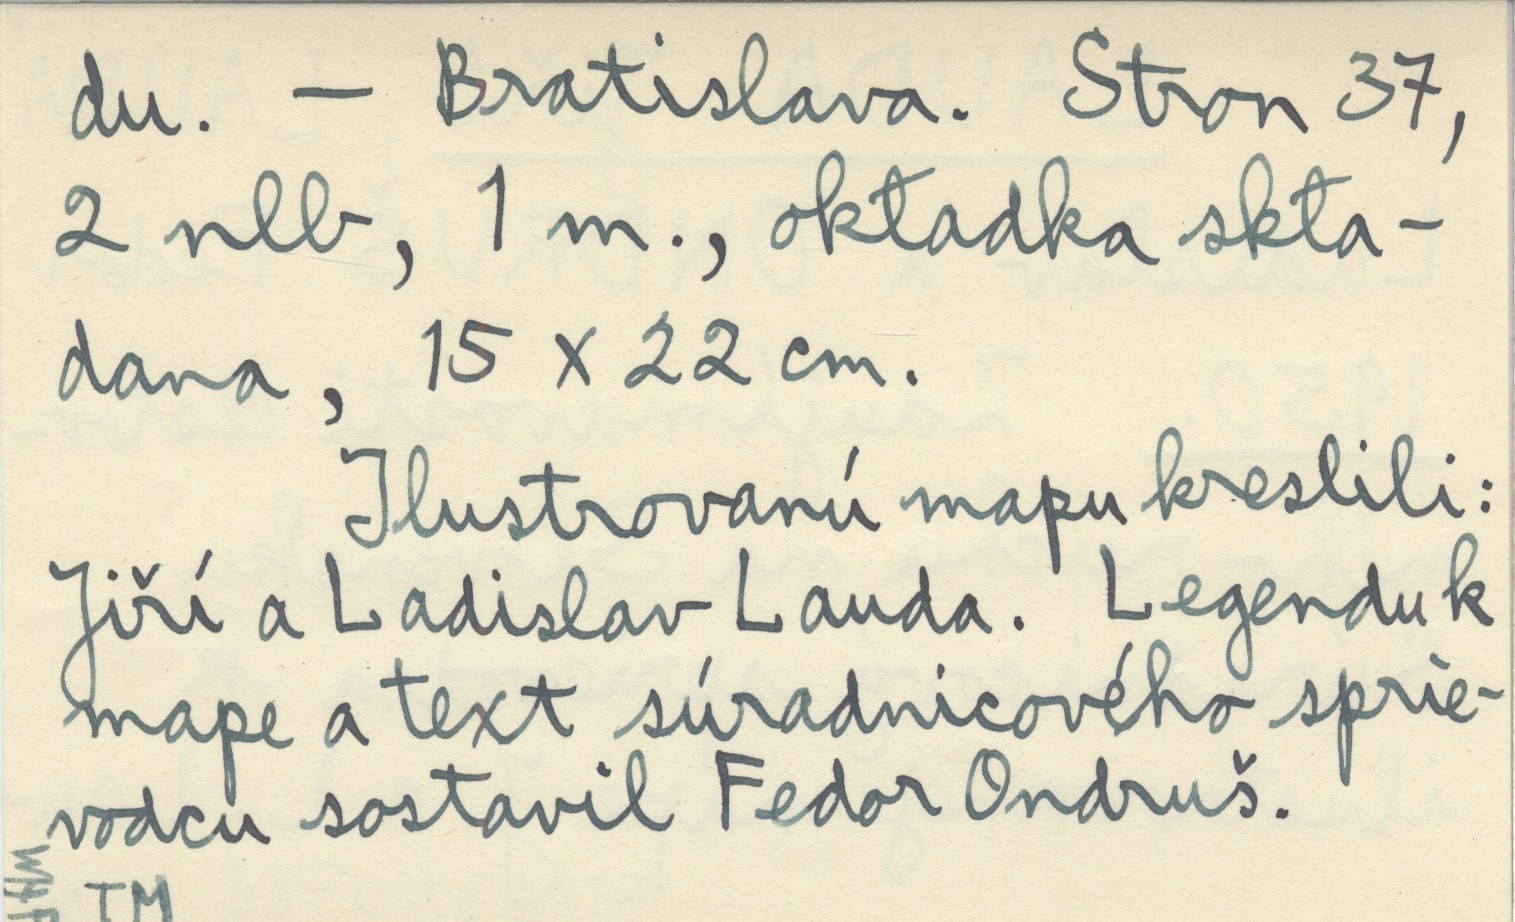 du. — Bratislava. Stron 37,
2 nlb, 1 m., okładka skła-
dana, 15 x 22 cm.
Ilustrovanú mapu kreslili:
Jiří a Ladislav Lauda. Legendu k
mape a text súradnicového sprie-
vodcu sostavil Fedor Ondruš.
TM